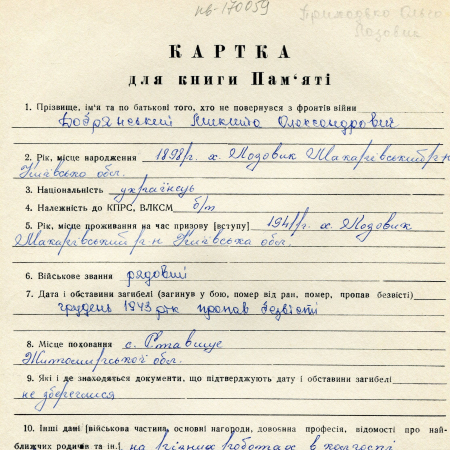 нв-170059
Приходько Ольга
Лозовик
КАРТКА
для книги Пам‘яті
1. Прізвище, ім'я та по батькові того, хто не повернувся з фронтів війни
Добрянський Микита Олександрович
2. Рік, місце народження 1898 р. х. Лозовик Макарівський р-н
Київська обл.
3. Національність українець
4. Належність до КПРС, ВЛКСМ б/п
5. Рік, місце проживання на час призову [вступу] 1941 р. х. Лозовик
Макарівський р-н Київська обл.
6. Військове звання рядовий
7. Дата і обставини загибелі (загинув у бою, помер від ран, помер, пропав безвісті)
грудень 1943 рік пропав безвісті
8. Місце поховання с. Ставище
Житомирської обл.
9. Які і де знаходяться документи, що підтверджують дату і обставини загибелі
не збереглися
10. Інші дані [військова частина, основні нагороди, довоєнна професія, відомості про най-
ближчих родичів та ін.] на різних роботах в колгоспі